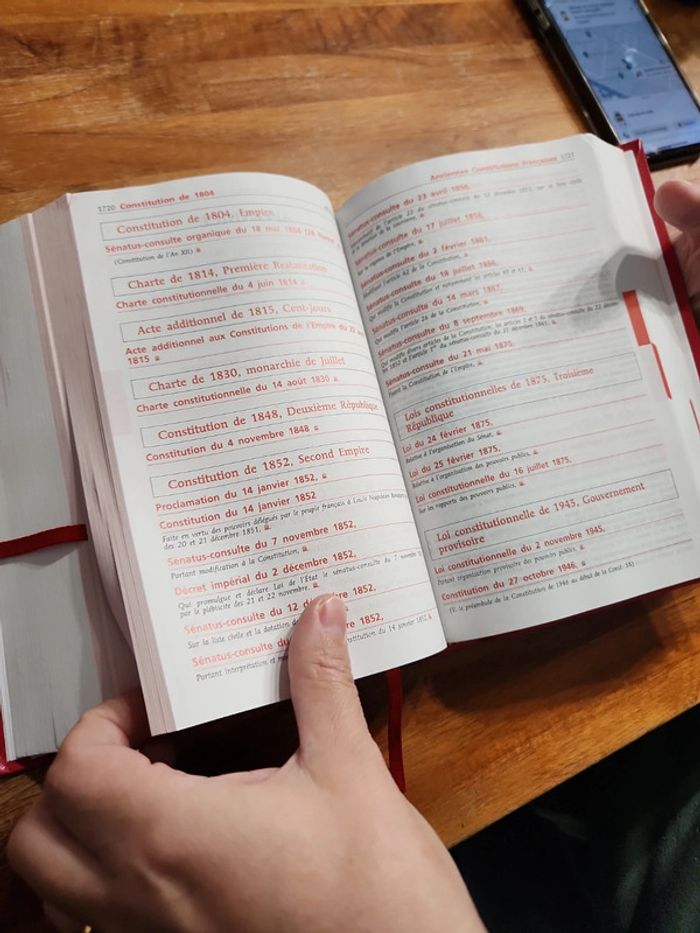 1720 Constitution de 1804
Constitution de 1804, Empire
Sénatus-consulte organique du 18 mai 1804
(Constitution de l'An XII)
Charte de 1814, Première Restauration
Charte constitutionnelle du 4 juin 1814
Acte additionnel de 1815, Cent-jours
Acte additionnel aux Constitutions de l'Empire du 22
1815
Charte de 1830, monarchie de Juillet
Charte constitutionnelle du 14 août 1830
Constitution de 1848, Deuxième République
Constitution du 4 novembre 1848
Constitution de 1852, Second Empire
Proclamation du 14 janvier 1852,
Constitution du 14 janvier 1852
Faite en vertu des pouvoirs délégués par le peuple français à Louis Napoléon
des 20 et 21 décembre 1851.
Sénatus-consulte du 7 novembre 1852,
Portant modification à la Constitution,
Décret impérial du 2 décembre 1852,
Qui promulgue et déclare Loi de l'État le sénatus-consulte du 7
par le plébiscite des 21 et 22 novembre.
Sénatus-consulte du 12 1852,
Sur la liste civile et la dotation
Sénatus-consulte 1852,
Portant interprétation et du 14 janvier 1852
Anciennes Constitutions Françaises 1721
Sénatus-consulte du 23 avril 1856,
Sénatus-consulte du 17 juillet 1856,
Sénatus-consulte du 2 février 1861,
l'article 42 de la Constitution,
Sénatus-consulte du 18 juillet 1866,
Qui modifie la Constitution et notamment les articles
Sénatus-consulte du 14 mars 1867,
Qui modifie l'article 26 de la Constitution,
Sénatus-consulte du 8 septembre 1869,
Qui modifie divers articles de la Constitution, les articles 3 et 5 du sénatus-consulte du
Sénatus-consulte du 21 mai 1870,
Fixant la Constitution de l'Empire,
Lois constitutionnelles de 1875, Troisième
République
Loi du 24 février 1875,
Relative à l'organisation du Sénat,
Loi du 25 février 1875,
Relative à l'organisation des pouvoirs publics,
Loi constitutionnelle du 16 juillet 1875,
Sur les rapports des pouvoirs publics,
Loi constitutionnelle de 1945, Gouvernement
provisoire
Loi constitutionnelle du 2 novembre 1945,
Portant organisation provisoire des pouvoirs publics,
Constitution du 27 octobre 1946,
(V. le préambule de la Constitution de 1946 au début de la Const. 58)